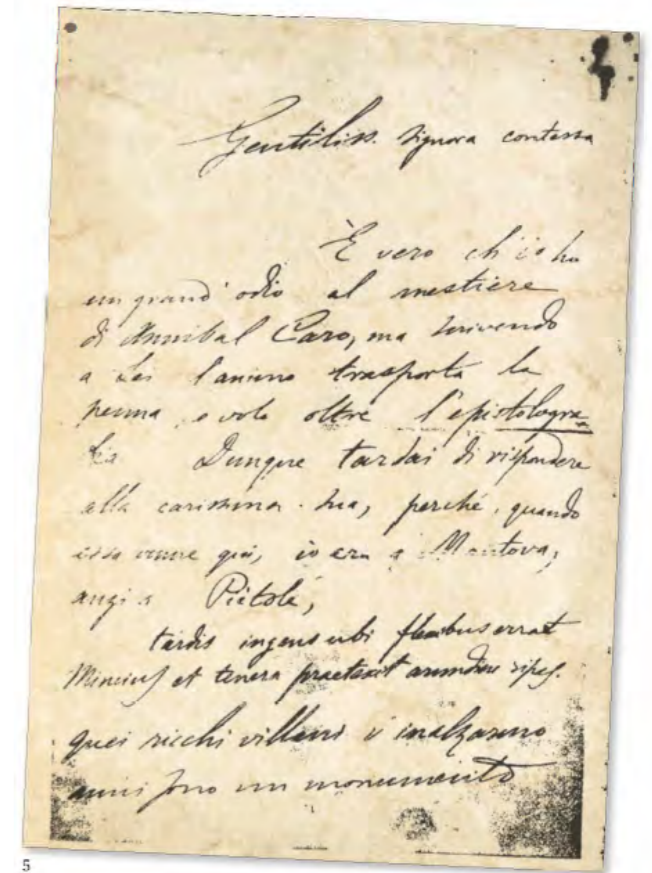 Gentiliss. signora contessa
È vero ch'io ho
un grand'odio al mestiere
di Annibal Caro, ma scrivendo
a Lei l'animo trasporta la
penna, e volo oltre l'epistologra
fia. Dunque tardai di rispondere
alla carissima sua, perché, quando
essa venne qui, io era a Mantova,
anzi a Pietole,
tardis ingens ubi flexibus errat
Mincius et tenera praetexit arundine ripas.
quei ricchi villani v'inalzarono
anni sono un monumento
5